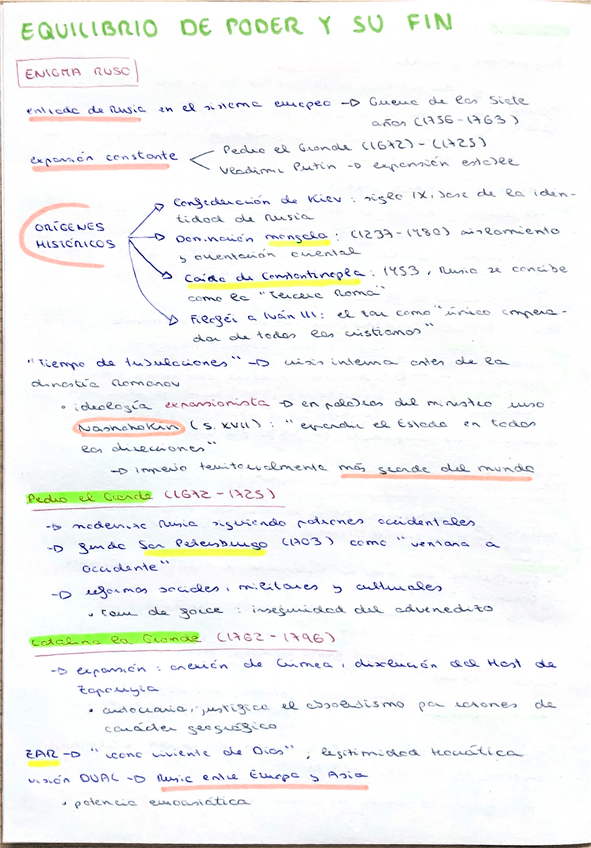 EQUILIBRIO DE PODER Y SU FIN
ENIGMA RUSO
entrada de Rusia en el sistema europeo → Guerra de los Siete
años (1756-1763)
expansión constante
Pedro el Grande (1672) - (1725)
Vladimir Putin → expansión estable
ORÍGENES
HISTÓRICOS
Confederación de Kiev: siglo IX, base de la iden-
tidad de Rusia
Dominación mongola: (1237-1480) aislamiento
y orientación oriental
Caída de Constantinopla: 1453, Rusia se concibe
como la "Tercera Roma"
Filoféi a Iván III: el zar como "único empera-
dor de todos los cristianos"
"Tiempo de tribulaciones" → crisis interna antes de la
dinastía Romanov
• ideología expansionista → en palabras del ministro ruso
Nashchokin (s. XVII): "expandir el Estado en todas
las direcciones"
→ imperio territorialmente más grande del mundo
Pedro el Grande (1672-1725)
→ moderniza Rusia siguiendo patrones occidentales
→ funda San Petersburgo (1703) como "ventana a
occidente"
→ reformas sociales, militares y culturales
• tour de force: inseguridad del advenedizo
Catalina la Grande (1762-1796)
→ expansión: anexión de Crimea, disolución del Host de
Zaporiyia
• autocracia, justifica el absolutismo por razones de
carácter geográfico
ZAR → "icono viviente de Dios", legitimidad
visión DUAL → Rusia entre Europa y Asia
• potencia euroasiática